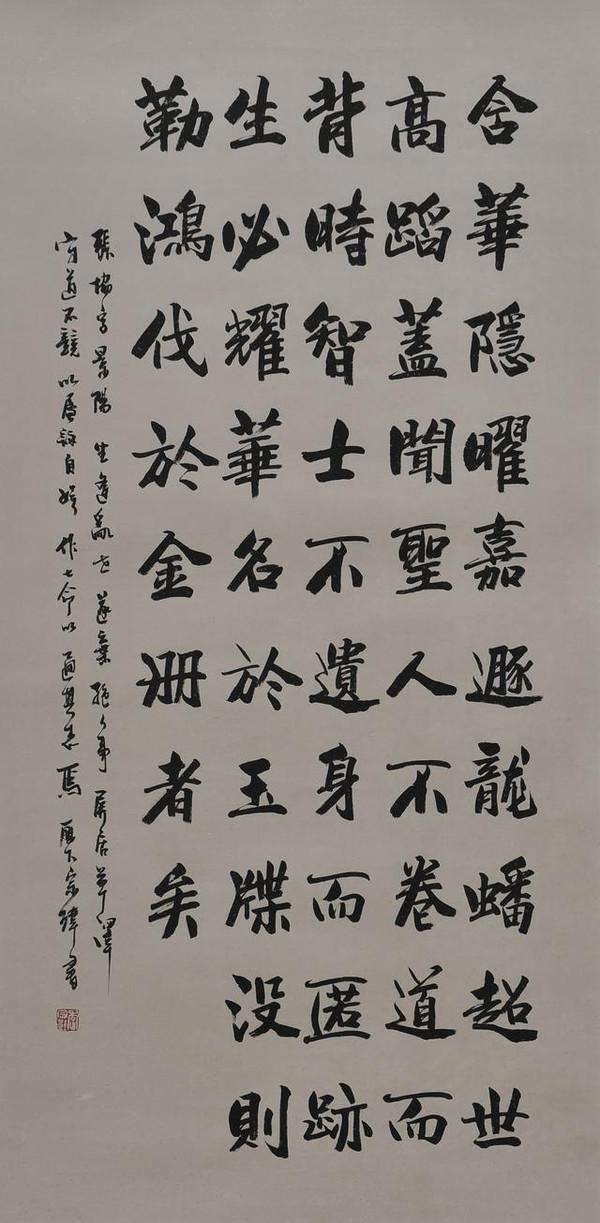 含華隱曜嘉遯龍蟠超世
高蹈蓋聞聖人不卷道而
背時智士不遺身而匿跡
生必耀華名於玉牒没則
勒鴻伐於金册者矣
張協字景陽生逢亂世遂棄絕人事屏居草澤
守道不競以屬詠自娛作七命以適其志焉廈門宗緯書